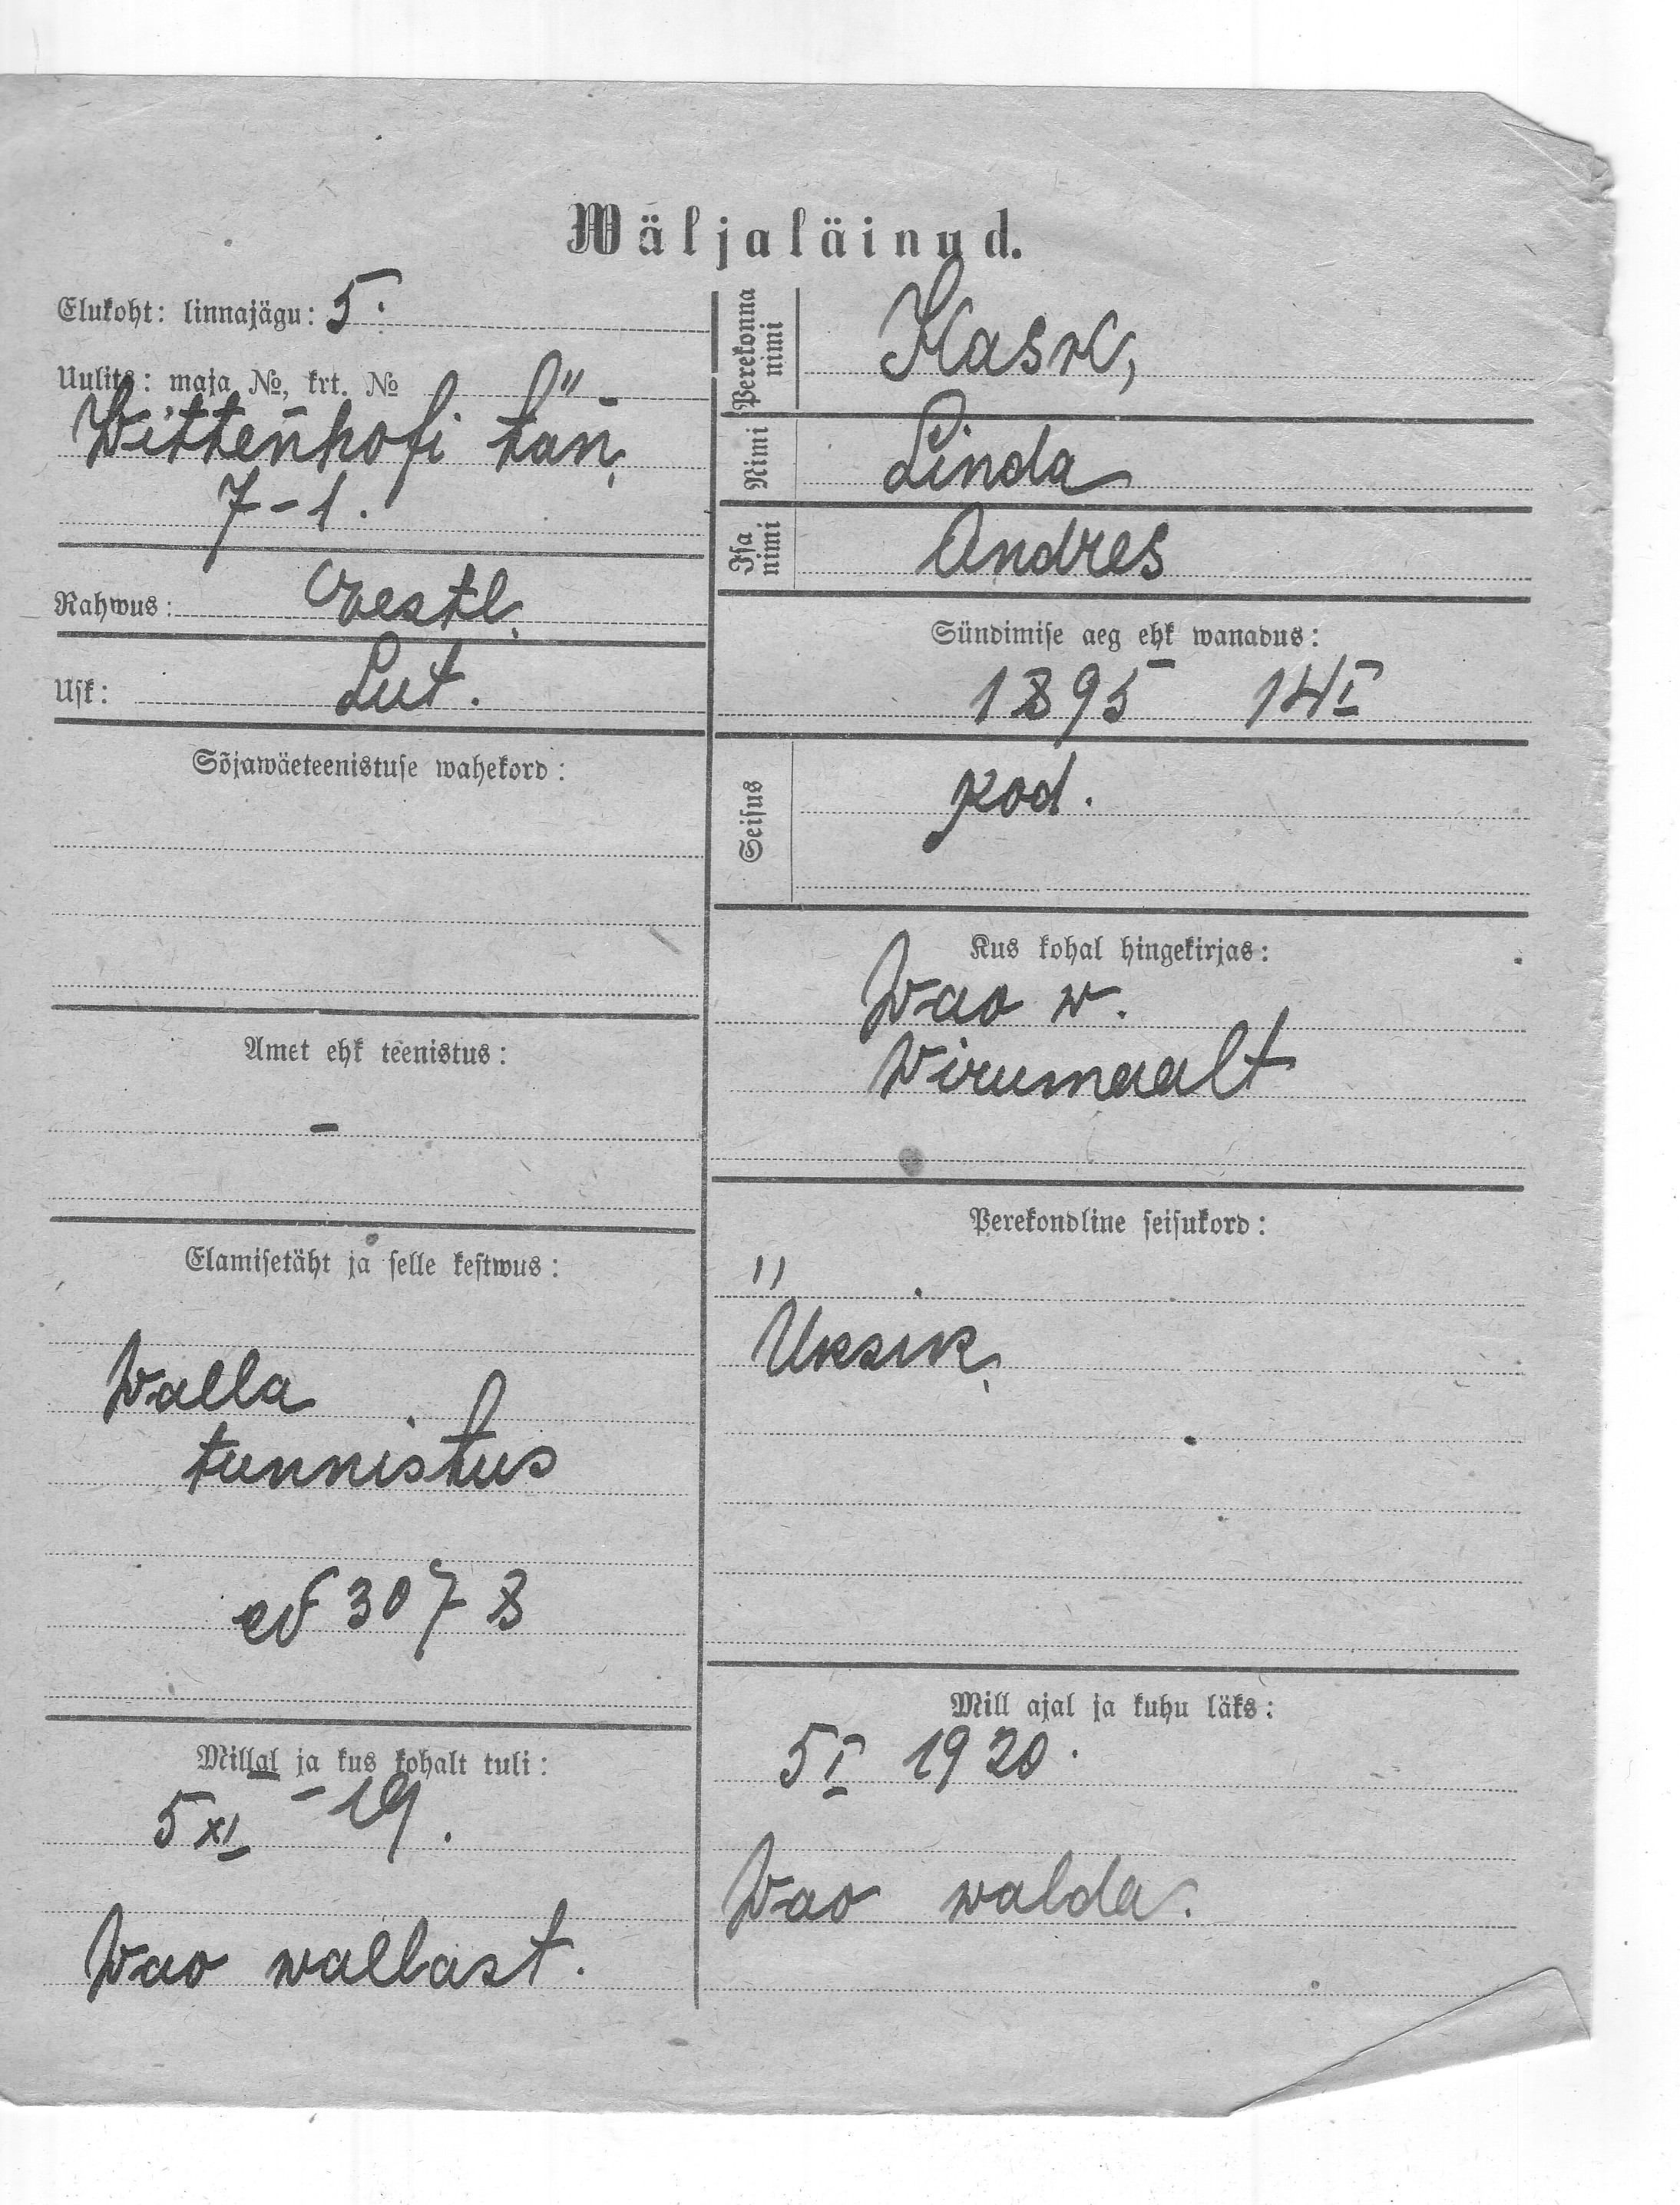 Wäljaläinud.
Elukoht: linnajägu: 5.
Uulits: maja №, krt. №
Wittenhofi tän.
7-1.
Rahwus: Eestl.
Usk: Lut.
Sõjawäeteenistuse wahekord:
Amet ehk teenistus:
-
Elamisetäht ja selle kestwus:
Walla
tunnistus
№ 3078
Millal ja kus kohalt tuli:
5 XI - 19.
Wao wallast.
Perekonna nimi
Kask,
Nimi
Linda
Isa nimi
Andres
Sündimise aeg ehk wanadus:
1895 14 I
Seisus
kod.
Kus kohal hingekirjas:
Wao w.
Wirumaalt
Perekondline seisukord:
Üksik.
Mill ajal ja kuhu läks:
5 I 1920.
Wao walda.